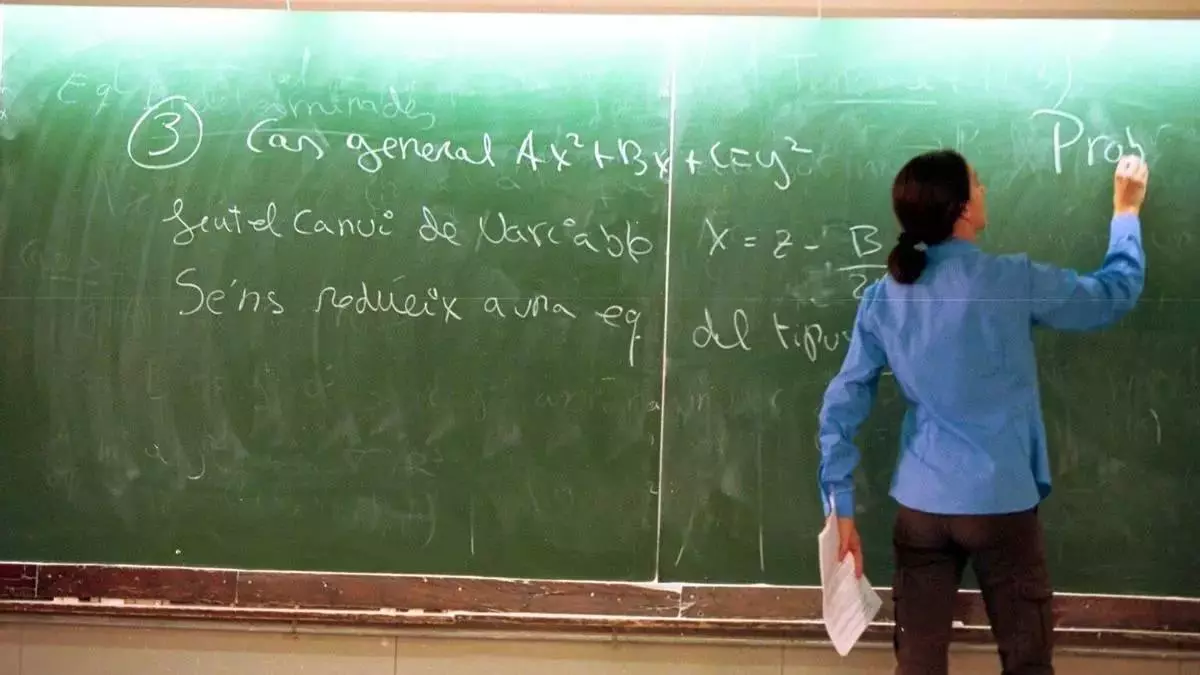 ③ Cas general Ax²+Bx+C=y²
fent el canvi de Variable x = z - B/2
Se'ns redueix a una eq del tipus
Prob